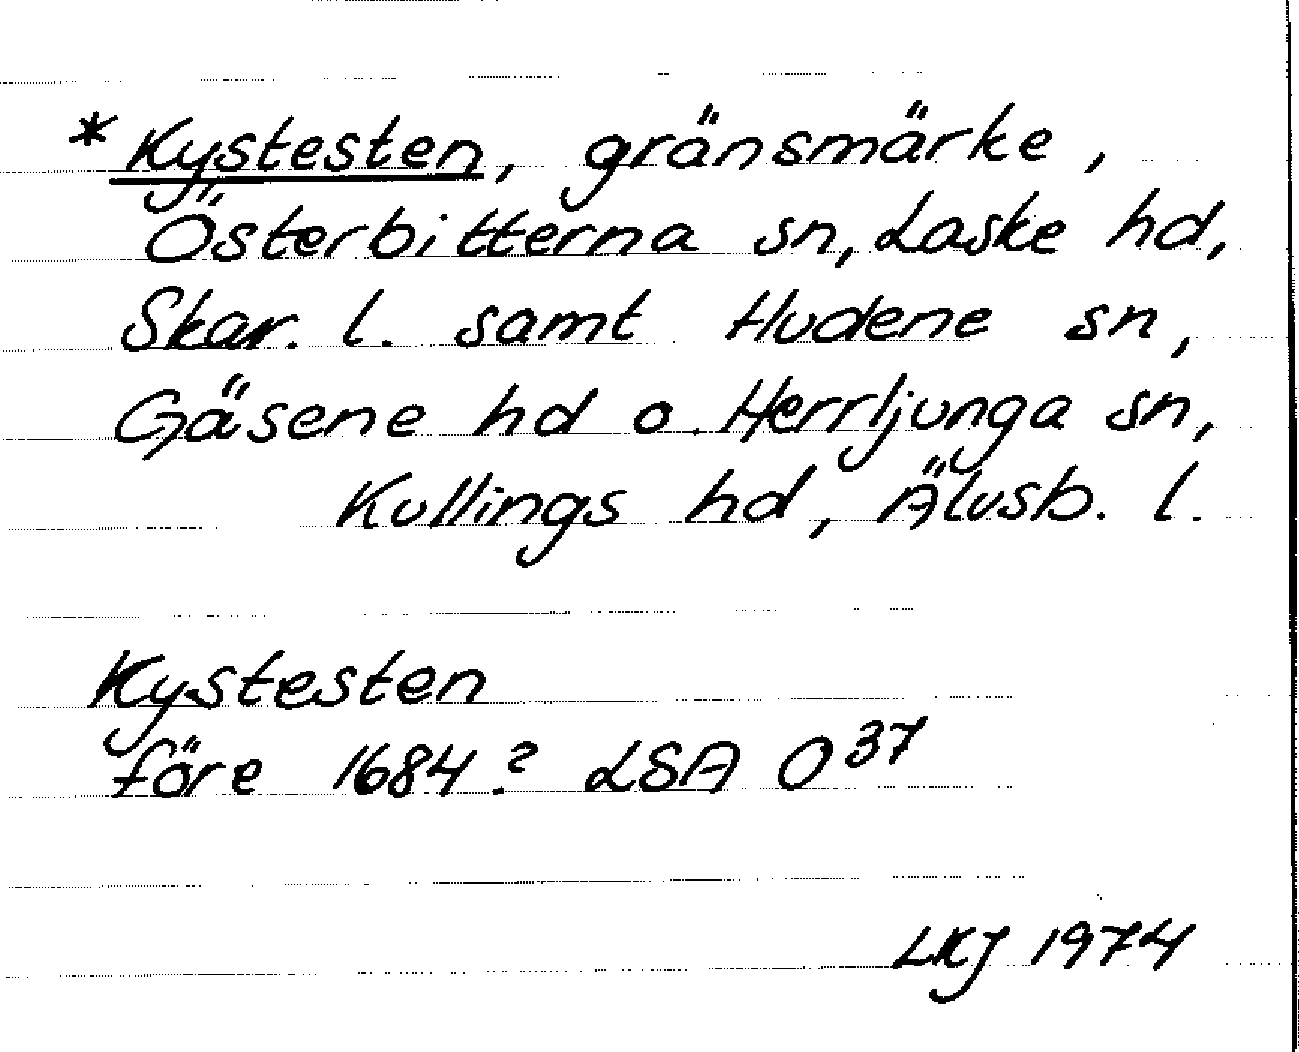 * Kystesten, gränsmärke,
Österbitterna sn, Laske hd,
Skar. l. samt Hudene sn,
Gäsene hd o. Herrljunga sn,
Kullings hd, Älvsb. l.
Kystesten
före 1684? LSA O 37
LKJ 1974